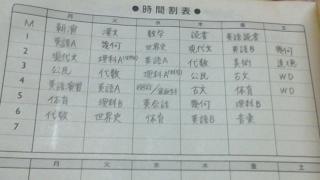 ●時間割表●
月 火 水 木 金 土
M 朝有 漢文 数学 読書 英語読書
1 英語A 幾何 世界史 現代文 英語B 幾何
2 現代文 理科A 英語A 代数 美術 道徳
3 公民 代数 理科A 公民 古文 WD
4 英語演習 英語A 古文 体育 WD
5 体育 理科B 英会話 幾何 理科B
6 代数 世界史 体育 英語B 音楽
7
月 火 水 木 金 土